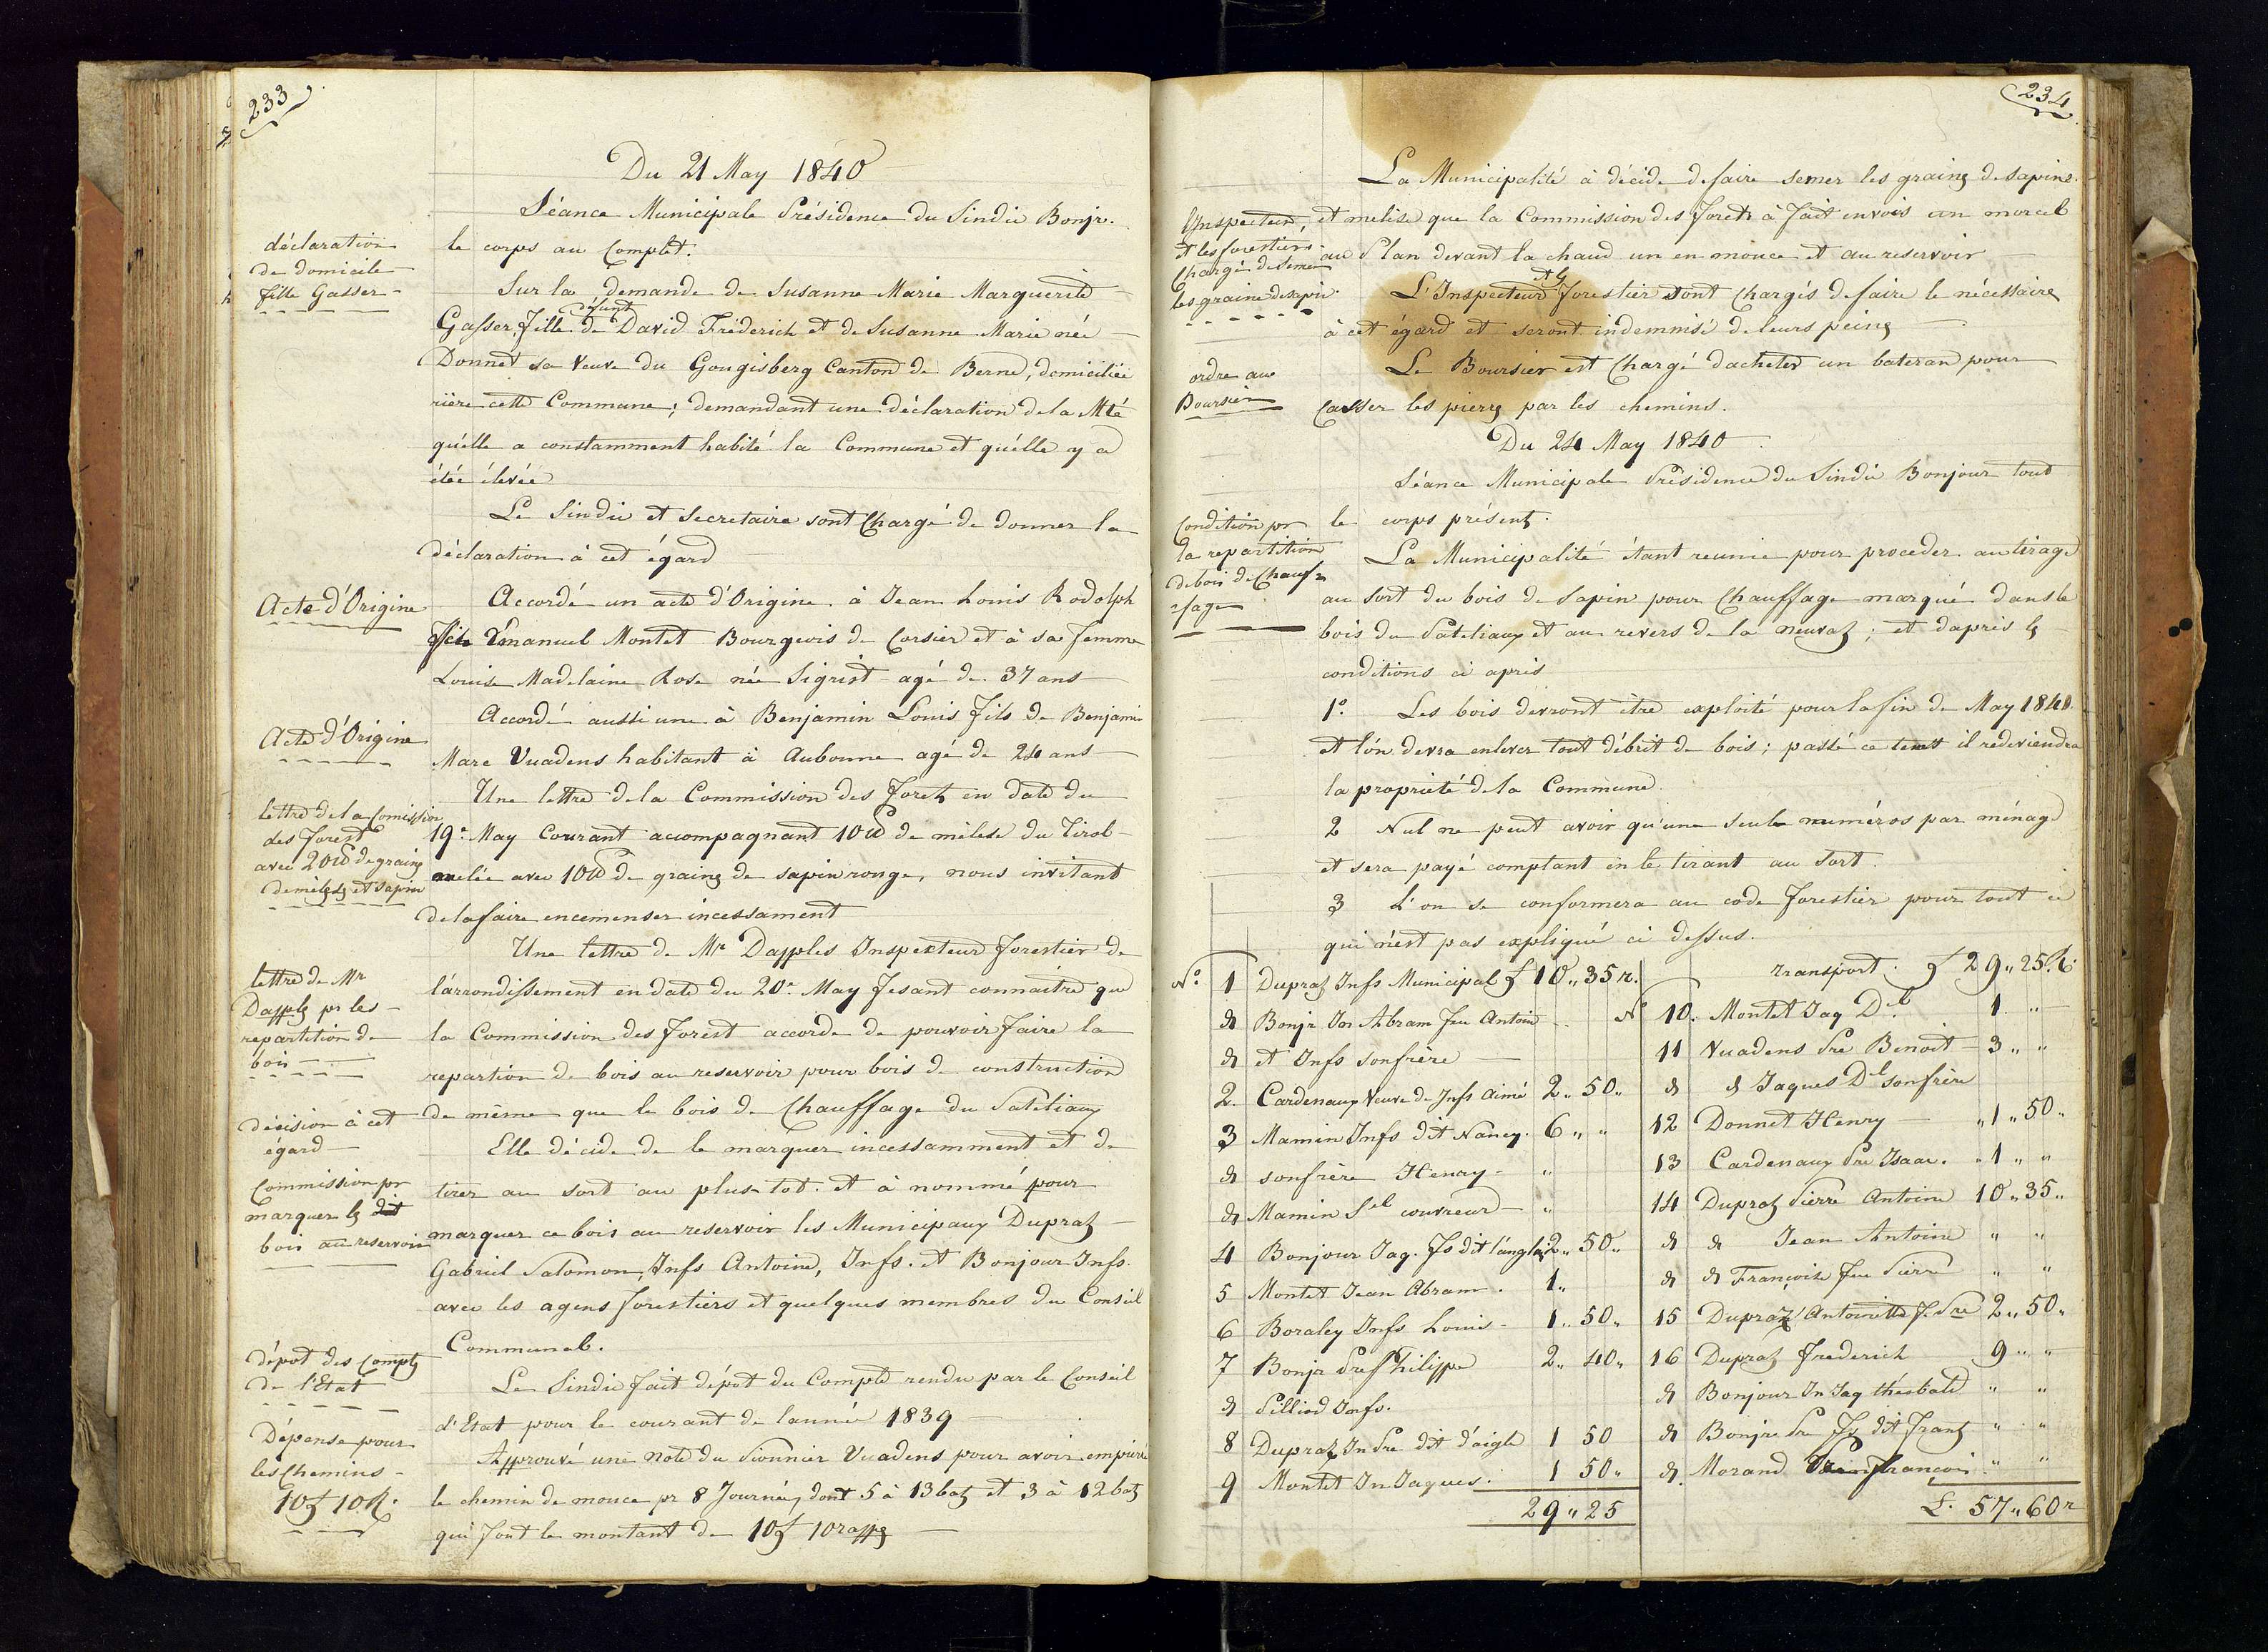 233
Du 21 May 1840
Séance Municipale Présidence du Sindic Bonjr.
le corps au Complet.
déclaration
de domicile
fille Gasser
Sur la demande de Susanne Marie Marguerite
défunt
Gasser, fille de David Fréderich et de Susanne Marie née
Donnet sa Veuve du Gougisberg Canton de Berne, domiciliée
rière cette Commune; demandant une déclaration de la Mté
qu'elle a constamment habité la Commune et qu'elle y a
étée élevée
Le Sindic et Secretaire sont Chargé de donner la
déclaration à cet égard
Acte d'Origine
Accordé un acte d'Origine à Jean Louis Rodolph
fils d'Emanuel Montet Bourgeois de Corsier et à sa femme
Louise Madelaine Rose née Sigrist agé de 37 ans
Acte d'Origine
Accordé aussi une à Benjamin Louis fils de Benjamin
Marc Vuadens habitant à Aubonne agé de 24 ans
lettre de la Comission
des forest
avec 20 ℔ de graines
de mélèse et sapin
Une lettre de la Commission des forets en date du
19e May Courant accompagnant 10 ℔ de mélese du Tirol
melée avec 10 ℔ de graines de sapin rouge, nous invitant
de la faire encemenser incessament
lettre de Mr
Dapples pr les
repartition de
bois
Une lettre de Mr Dapples Inspecteur forestier de
l'arrondissement en date du 20e May fesant connaitre que
la Commission des forest accorde de pouvoir faire la
repartion de bois au reservoir pour bois de construction
de même que le bois de Chauffage du Pateliaux
décision à cet
égard
Elle décide de le marquer incessamment et de
tirer au sort au plus tot. et à nommé pour
Commission pr
marquer les dit
bois au reservoir
marquer ce bois au reservoir les Municipaux Dupraz
Gabriel Salomon, Jnfs Antoine, Jnfs. et Bonjour Jnfs.
avec les agens forestiers et quelques membres du Conseil
Communal.
dépot des Comptes
de l'Etat
Le Sindic fait dépot du Compte rendu par le Conseil
d'Etat pour le courant de l'année 1839
Dépense pour
les Chemins
10 f 10 R.
Approuvé une note du Pionnier Vuadens pour avoir empierré
le chemin de mouce pr 8 Journées dont 5 à 13 batz et 3 à 12 batz
qui font le montant de 10 f 10 rappes
234
La Municipalité à décide de faire semer les graines de sapins
et melise que la Commission des forets à fait envois un morcel
au Plan devant la chaud un en mouce et au reservoir
l'Inspecteur
et les forestiers
Chargé de semer
les graine de sapin
et les
L'Inspecteur forestier sont Chargés de faire le nécessaire
à cet égard et seront indemnisé de leurs peines
ordre au
Boursier
Le Boursier est Chargé d'acheter un bateran pour
Casser les pierres par les chemins.
Du 24 May 1840
Séance Municipale Présidence du Sindic Bonjour tout
le corps présent.
Condition pr
la repartition
de bois de Chauf
fage
La Municipalité étant reunie pour proceder au tirage
au sort du bois de Sapin pour Chauffage marqué dans le
bois du Pateliaux et au revers de la neuvaz; et d'après les
conditions ci après
1o. Les bois devront être exploité pour la fin de May 1841
et l'on devra enlever tout débrit de bois; passé ce tems il redeviendra
la propriété de la Commune.
2 Nul ne peut avoir qu'une seule numéros par ménage
et sera payé comptant en le tirant au sort.
3 L'on se conformera au code forestier pour tout ce
qui n'est pas expliqué ci dessus.
No. 1 Dupraz Jnfs Municipal f 10 „ 35 r.
d Bonjr Jn Abram feu Antoine
d et Jnfs son frère
2. Cardenaux Veuve de Jnfs Aimé 2 „ 50 „
3 Mamin Jnfs dit Nancy. 6 „ „
d son frère Henry „
d Mamin Sel couvreur „
4 Bonjour Jaq. Fs dit l'anglais 2 „ 50 „
5 Montet Jean Abram. 1 „
6 Boraley Jnfs Louis 1 „ 50 „
7 Bonjr Pre Philippe 2 „ 40 „
d Pilliod Jnfs.
8 Dupraz Jn Pre dit d'aigle 1 50
9 Montet Jn Jaques. 1 50 „
29 „ 25
Transport. f 29 „ 25 R.
No 10. Montet Jaq Dl 1. „
11 Vuadens Pre Benoit 3 „ „
d d Jaques Dl son frère
12 Donnet Henry „ 1 „ 50 „
13 Cardenaux Pre Isaac. „ 1 „ „
14 Dupraz Pierre Antoine 10 „ 35 „
d d Jean Antoine „ „
d d Françoise feu Pierre „ „
15 Dupraz Antoinette f. Pre 2 „ 50 „
16 Dupraz Frederich 9 „ „
d Bonjour Jn Jaq théobald „ „
d Bonjr Pre Fs dit Franz „ „
d. Morand François „ „
L. 57 „ 60 r